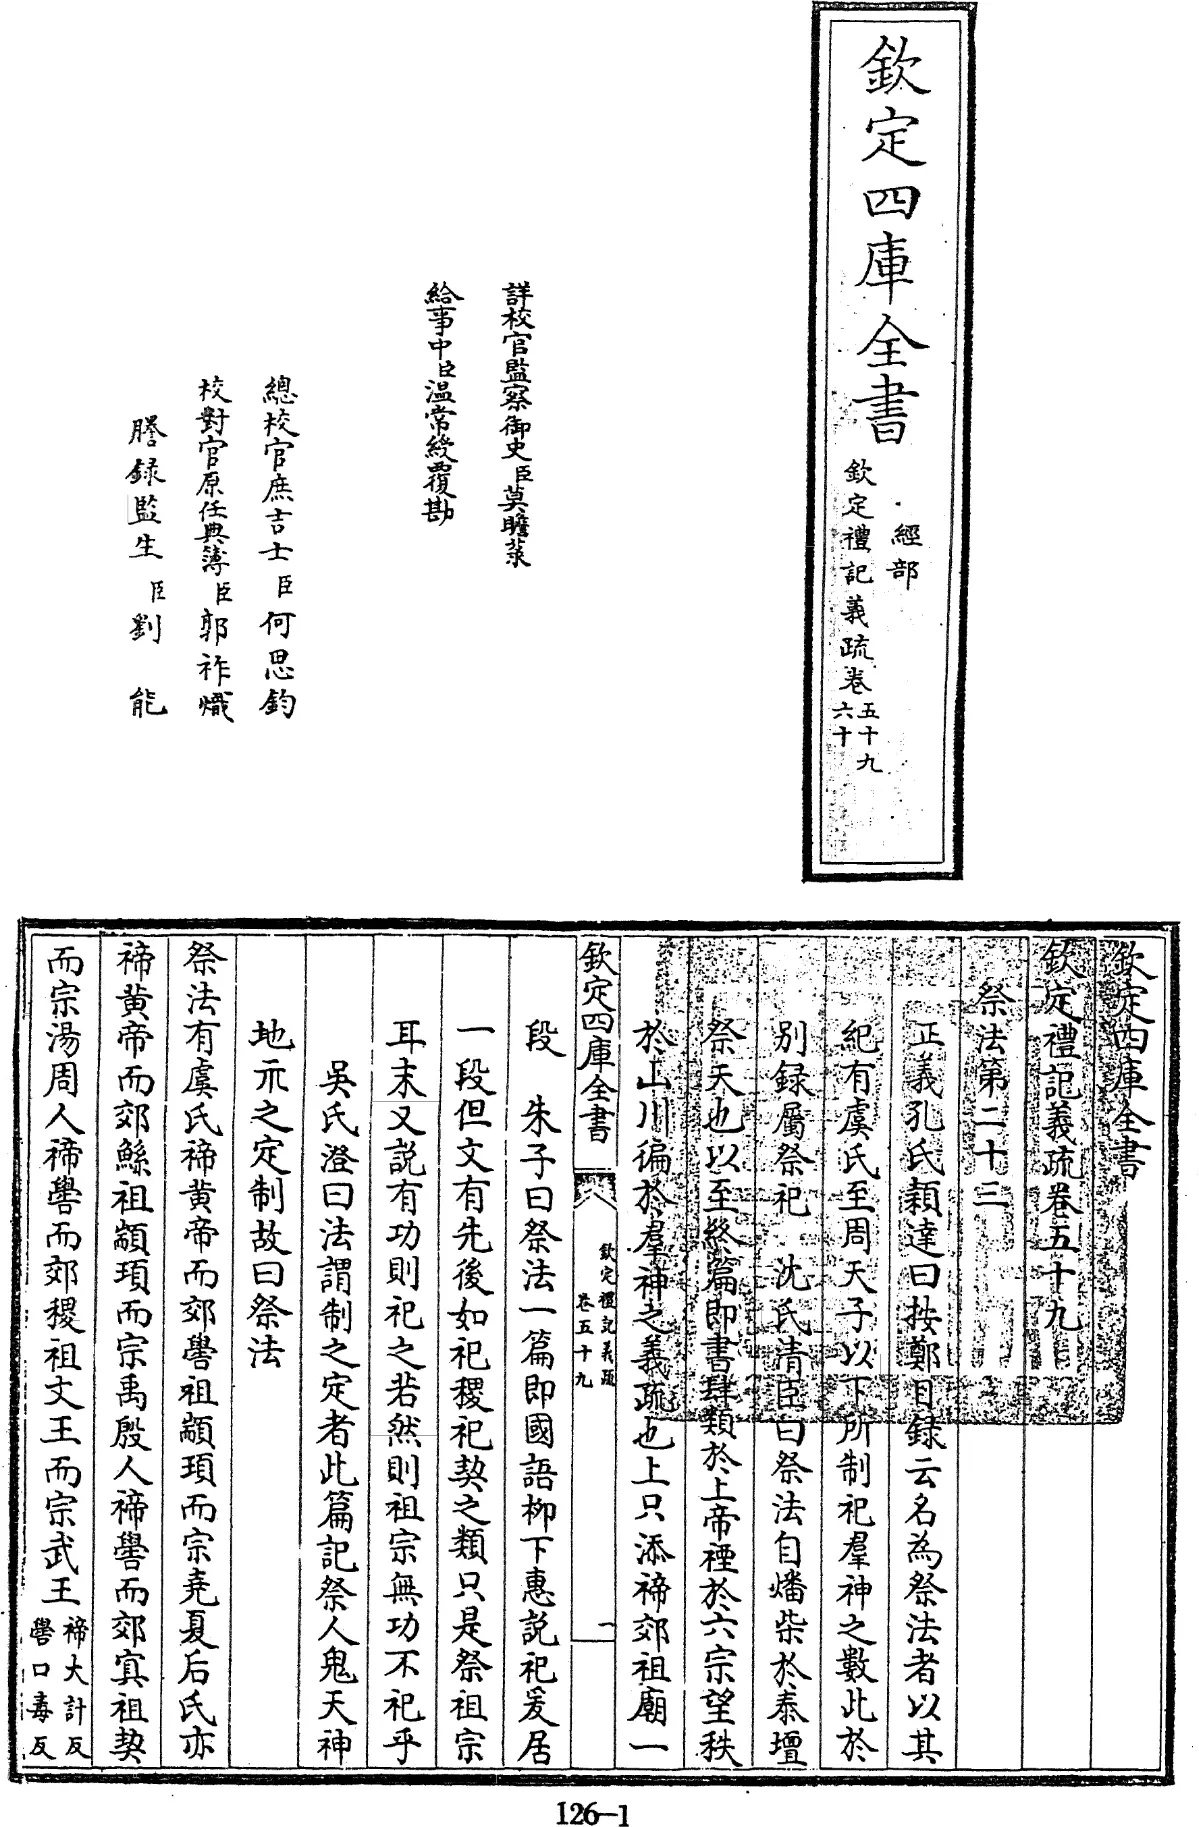 欽定四庫全書
經部
欽定禮記義疏卷五十九
六十
詳校官監察御史臣莫瞻菉
給事中臣温常綬覆勘
總校官庶吉士臣何思鈞
校對官原任典簿臣郭祚熾
謄錄監生臣劉能
欽定四庫全書
欽定禮記義疏卷五十九
祭法第二十三
正義孔氏穎達曰按鄭目録云名為祭法者以其
紀有虞氏至周天子以下所制祀羣神之數此於
別録屬祭祀 沈氏清臣曰祭法自燔柴於泰壇
祭天也以至終篇即書肆類於上帝禋於六宗望秩
於山川徧於羣神之義疏也上只添禘郊祖廟一
欽定四庫全書
欽定禮記義疏
卷五十九
一
段 朱子曰祭法一篇即國語柳下惠説祀爰居
一段但文有先後如祀稷祀契之類只是祭祖宗
耳末又説有功則祀之若然則祖宗無功不祀乎
吳氏澄曰法謂制之定者此篇記祭人鬼天神
地示之定制故曰祭法
祭法有虞氏禘黄帝而郊嚳祖顓頊而宗堯夏后氏亦
禘黄帝而郊鯀祖顓頊而宗禹殷人禘嚳而郊冥祖契
而宗湯周人禘嚳而郊稷祖文王而宗武王
禘大計反
嚳口毒反
126-1